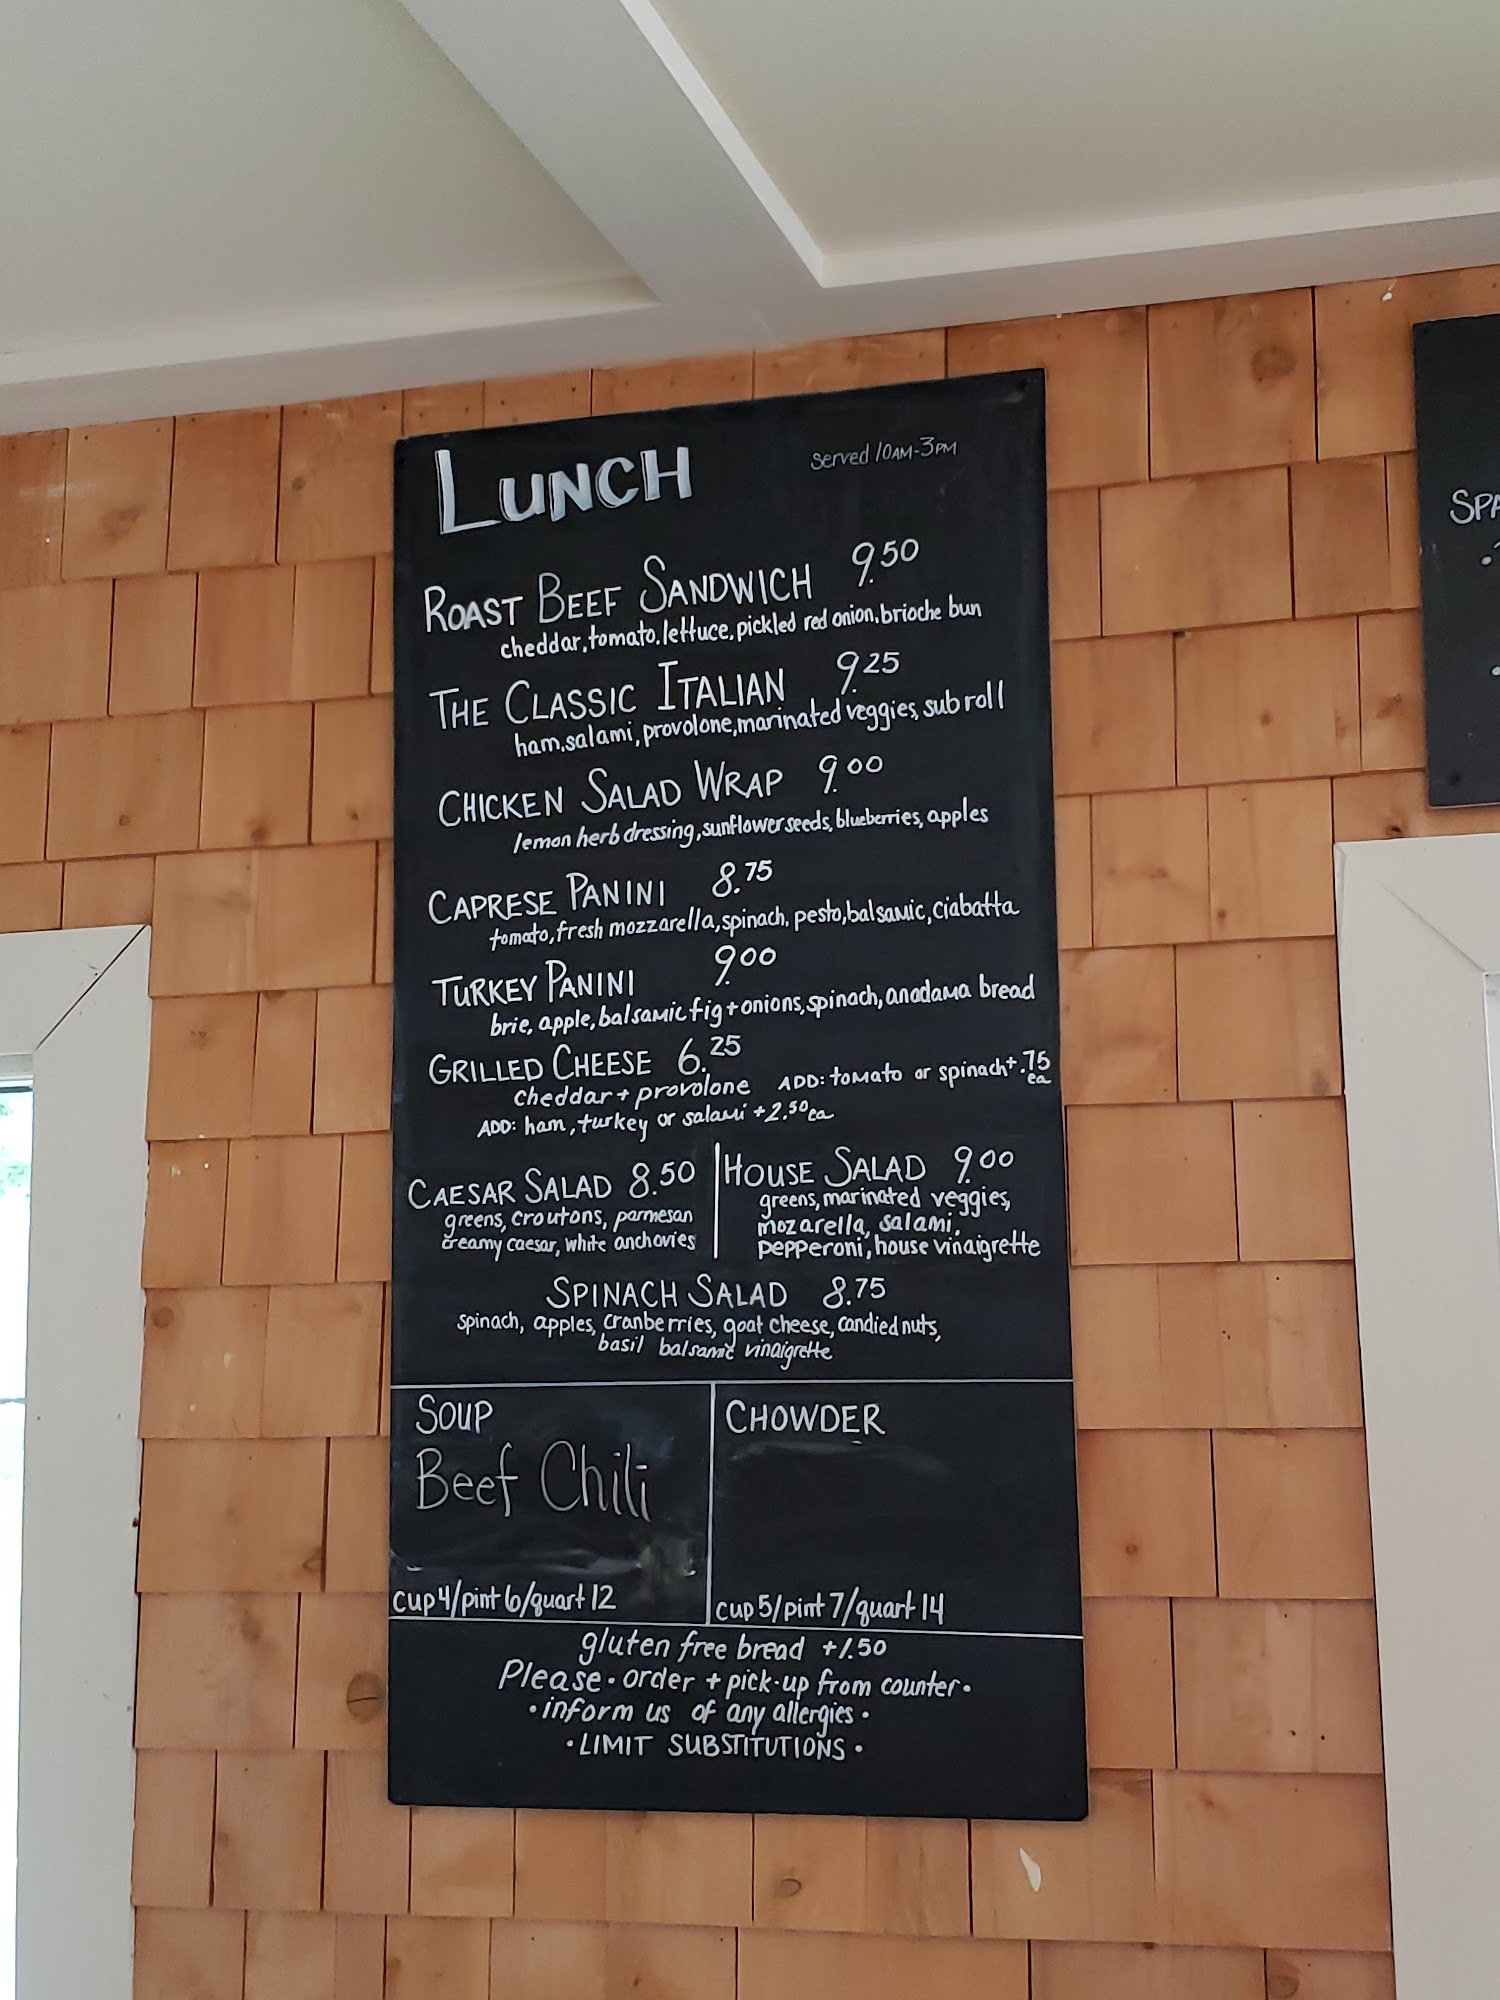 LUNCH Served 10AM-3PM
ROAST BEEF SANDWICH 9.50
cheddar, tomato, lettuce, pickled red onion, brioche bun
THE CLASSIC ITALIAN 9.25
ham, salami, provolone, marinated veggies, sub roll
CHICKEN SALAD WRAP 9.00
lemon herb dressing, sunflower seeds, blueberries, apples
CAPRESE PANINI 8.75
tomato, fresh mozzarella, spinach, pesto, balsamic, ciabatta
TURKEY PANINI 9.00
brie, apple, balsamic fig + onions, spinach, anadama bread
GRILLED CHEESE 6.25
cheddar + provolone ADD: tomato or spinach +.75 ea
ADD: ham, turkey or salami +2.50 ea
CAESAR SALAD 8.50
greens, croutons, parmesan
creamy caesar, white anchovies
HOUSE SALAD 9.00
greens, marinated veggies,
mozarella, salami,
pepperoni, house vinaigrette
SPINACH SALAD 8.75
spinach, apples, cranberries, goat cheese, candied nuts,
basil balsamic vinaigrette
SOUP
Beef Chili
cup 4/pint 6/quart 12
CHOWDER
cup 5/pint 7/quart 14
gluten free bread +1.50
Please • order + pick-up from counter •
• inform us of any allergies •
• LIMIT SUBSTITUTIONS •